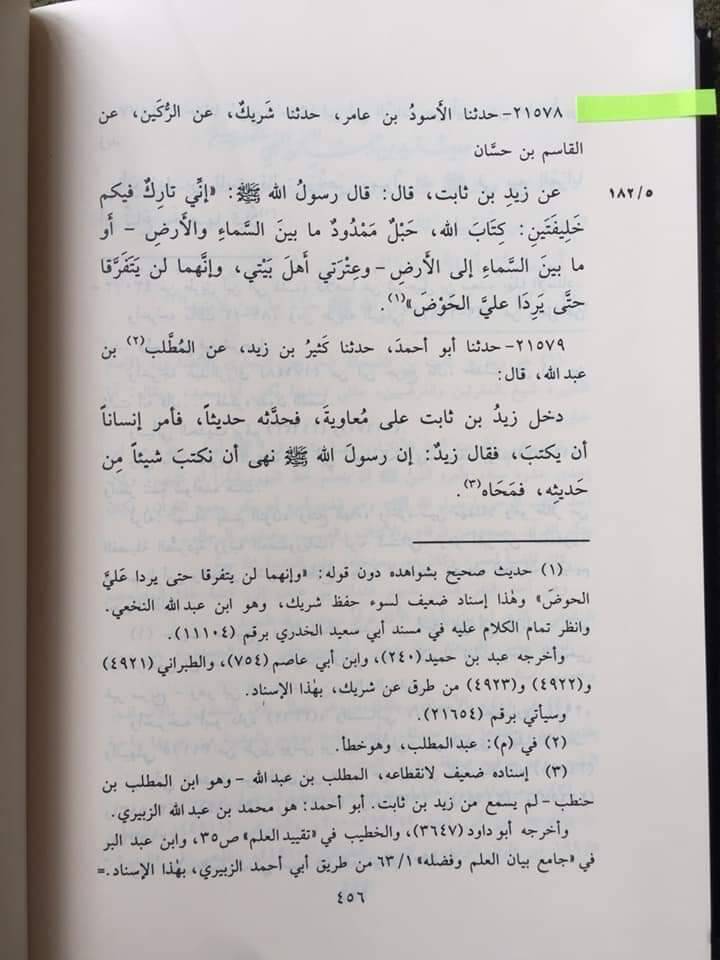 ٢١٥٧٨- حدثنا الأَسودُ بن عامر، حدثنا شَريكٌ، عن الرُّكَين، عن
القاسم بن حسَّان
١٨٢/٥ عن زيدِ بن ثابت، قال: قال رسولُ الله ﷺ: «إنِّي تاركٌ فيكم
خَلِيفَتَينِ: كِتابَ الله، حَبْلٌ مَمْدُودٌ ما بينَ السَّماءِ والأَرضِ - أَو
ما بينَ السَّماءِ إلى الأَرضِ - وعِتْرَتي أَهلَ بَيْتي، وإنَّهما لن يَتَفَرَّقا
حتَّى يَرِدَا عليَّ الحَوْضَ»(١).
٢١٥٧٩- حدثنا أبو أحمدَ، حدثنا كَثيرُ بن زيد، عن المُطَّلب(٢) بن
عبد الله، قال:
دخل زيدُ بن ثابت على مُعاويةَ، فحدَّثه حديثاً، فأَمر إنساناً
أن يكتبَ، فقال زيدٌ: إن رسولَ الله ﷺ نهى أن نكتبَ شيئاً مِن
حَديثِه، فمَحَاه(٣).
(١) حديث صحيح بشواهده دون قوله: «وإنهما لن يتفرقا حتى يردا عَليَّ
الحوضَ» وهٰذا إسناد ضعيف لسوء حفظ شريك، وهو ابن عبد الله النخعي.
وانظر تمام الكلام عليه في مسند أبي سعيد الخدري برقم (١١١٠٤).
وأخرجه عبد بن حميد (٢٤٠)، وابن أبي عاصم (٧٥٤)، والطبراني (٤٩٢١)
و(٤٩٢٢) و(٤٩٢٣) من طرق عن شريك، بهٰذا الإسناد.
وسيأتي برقم (٢١٦٥٤).
(٢) في (م): عبد المطلب، وهو خطأ.
(٣) إسناده ضعيف لانقطاعه، المطلب بن عبد الله - وهو ابن المطلب بن
حنطب - لم يسمع من زيد بن ثابت. أبو أحمد: هو محمد بن عبد الله الزبيري.
وأخرجه أبو داود (٣٦٤٧)، والخطيب في «تقييد العلم» ص٣٥، وابن عبد البر
في «جامع بيان العلم وفضله» ٦٣/١ من طريق أبي أحمد الزبيري، بهٰذا الإسناد.=
٤٥٦